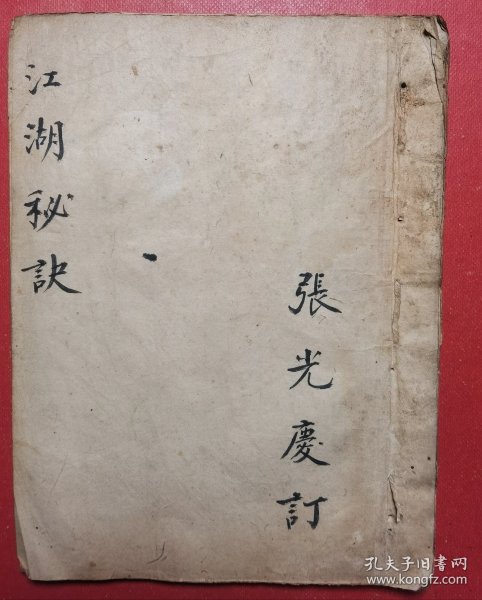 江湖秘訣
張光慶訂
孔夫子旧书网
www.kongfz.com